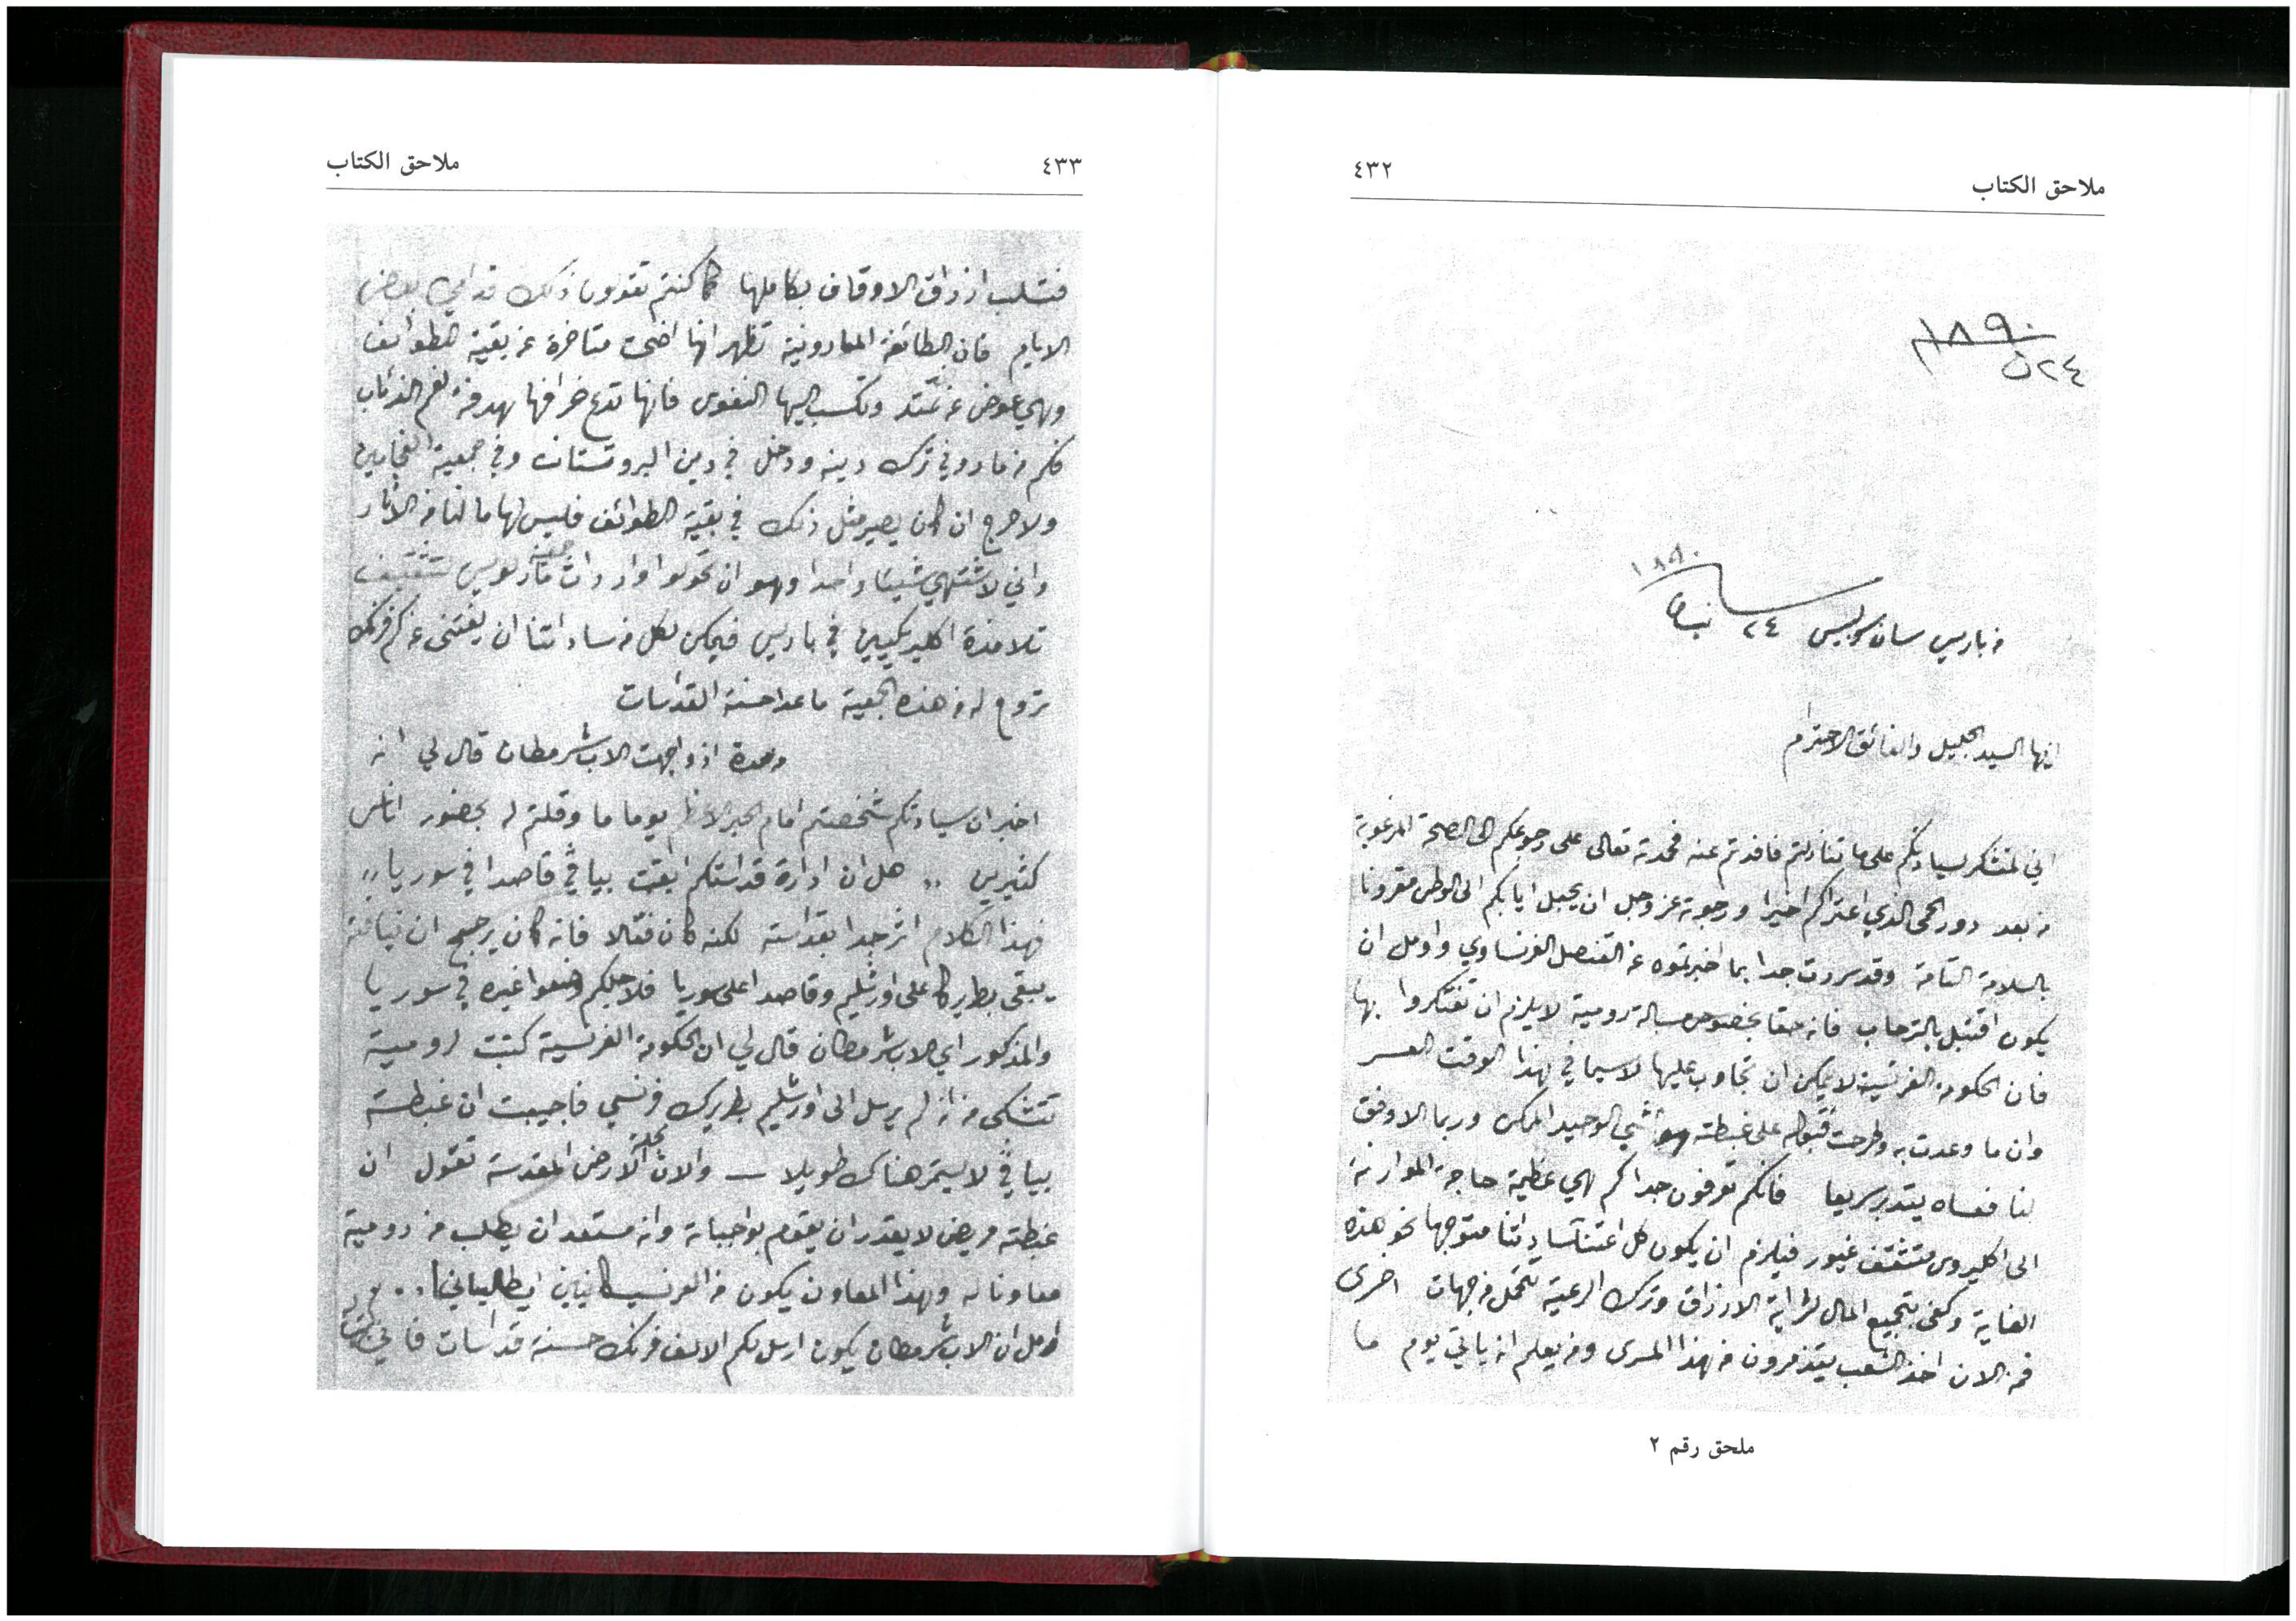 ملاحق الكتاب
٤٣٢
١٨٩٠
٢٤ ن
من باريس سان سولبيس ٢٤ نيسان ١٨٩٠
ايها السيد الجليل والفائق الاحترام
اني لمتشكر لسيادتكم على ما تنازلتم فافدتم عنه فحمدته تعالى على رجوعكم الى الصحة المرغوبة
من بعد دور الحمى الذي اعتراكم اخيرا ورجوته عز وجل ان يجعل ايابكم الى الوطن مقرونا
بالسلامة التامة وقد سررت جدا بما اخبرتموه عن القنصل الفرنساوي واومل ان
يكون اقتبل بالترحاب فانه حقا بخصوص مسالة رومية لا يلزم ان تفتكروا بها
فان الحكومة الفرنسية لا يمكن ان تجاوب عليها لا سيما في هذا الوقت العسر
وان ما وعدت به وطرحت قبوله على غبطته هو الشي الوحيد الممكن وربما الاوفق
لنا فعساه يتدبر سريعا فانكم تعرفون جدا كم هي عظيمة حاجة الموارنة
الى اكليروس متثقف غيور فيلزم ان يكون كل اعتنآ سادتنا متوجها نحو هذه
الغاية وكفى بتجميع المال لشراية الارزاق وترك الرعية تتحمل من جهات اخرى
فمن الان اخذ الشعب يتذمرون من هذا المسرى ومن يعلم انه ياتي يوم ما
ملحق رقم ٢
ملاحق الكتاب
٤٣٣
فتسلب ارزاق الاوقاف بكاملها كما كنتم تقولون ذلك قدامي بعض
الايام فان الطائفة المارونية تظهر انها اضحت متاخرة عن بقية الطوائف
وهي عوض عن تمتد وتكسب اليها النفوس فانها تدع خرافها هدفا لفم الذئاب
فكم من ماروني ترك دينه ودخل في دين البروتستان وفي جمعية الفحامين
ولا حرج ان كان يصير مثل ذلك في بقية الطوائف فليس لها ما لنا من الاثار
واني لاشتهي شيئا واحدا وهو ان تحولوا واردات جمعية مار لويس لتثقيف
تلامذة اكليريكيين في باريس فيمكن لكل من ساداتنا ان يغتني عن كم فرنك
تروح له من هذه الجمعية ما عدا حسنة القداسات
ومدة اذ واجهت الاب شرمطان قال لي انه
اخبر ان سيادتكم شخصتم امام الحبر الاعظم يوما ما وقلتم له بحضور اناس
كثيرين ,, هل ان ادارة قداستكم ابقت بيافي قاصدا في سوريا ,,
فهذا الكلام اثر جدا بقداسته لكنه كان فعّالا فانه كان يرجح ان نيافته
يبقى بطريركا على اورشليم وقاصدا على سوريا فلاجلكم وضعوا غيره في سوريا
والمذكور اي الاب شرمطان قال لي ان الحكومة الفرنسية كتبت لرومية
تتشكى من انه لم يرسل الى اورشليم بطريرك فرنسي فاجيبت ان غبطة
بيافي لا يستمر هناك طويلا ــ والان مجلة الارض المقدسة تقول ان
غبطته مريض لا يقدر ان يقوم بواجباته وانه مستعد ان يطلب من رومية
معاونا له وهذا المعاون يكون من الفرنسيسكانيين ايطاليانيا . .
اومل ان الاب شرمطان يكون ارسل لكم الالف فرنك حسنة قداسات فاني